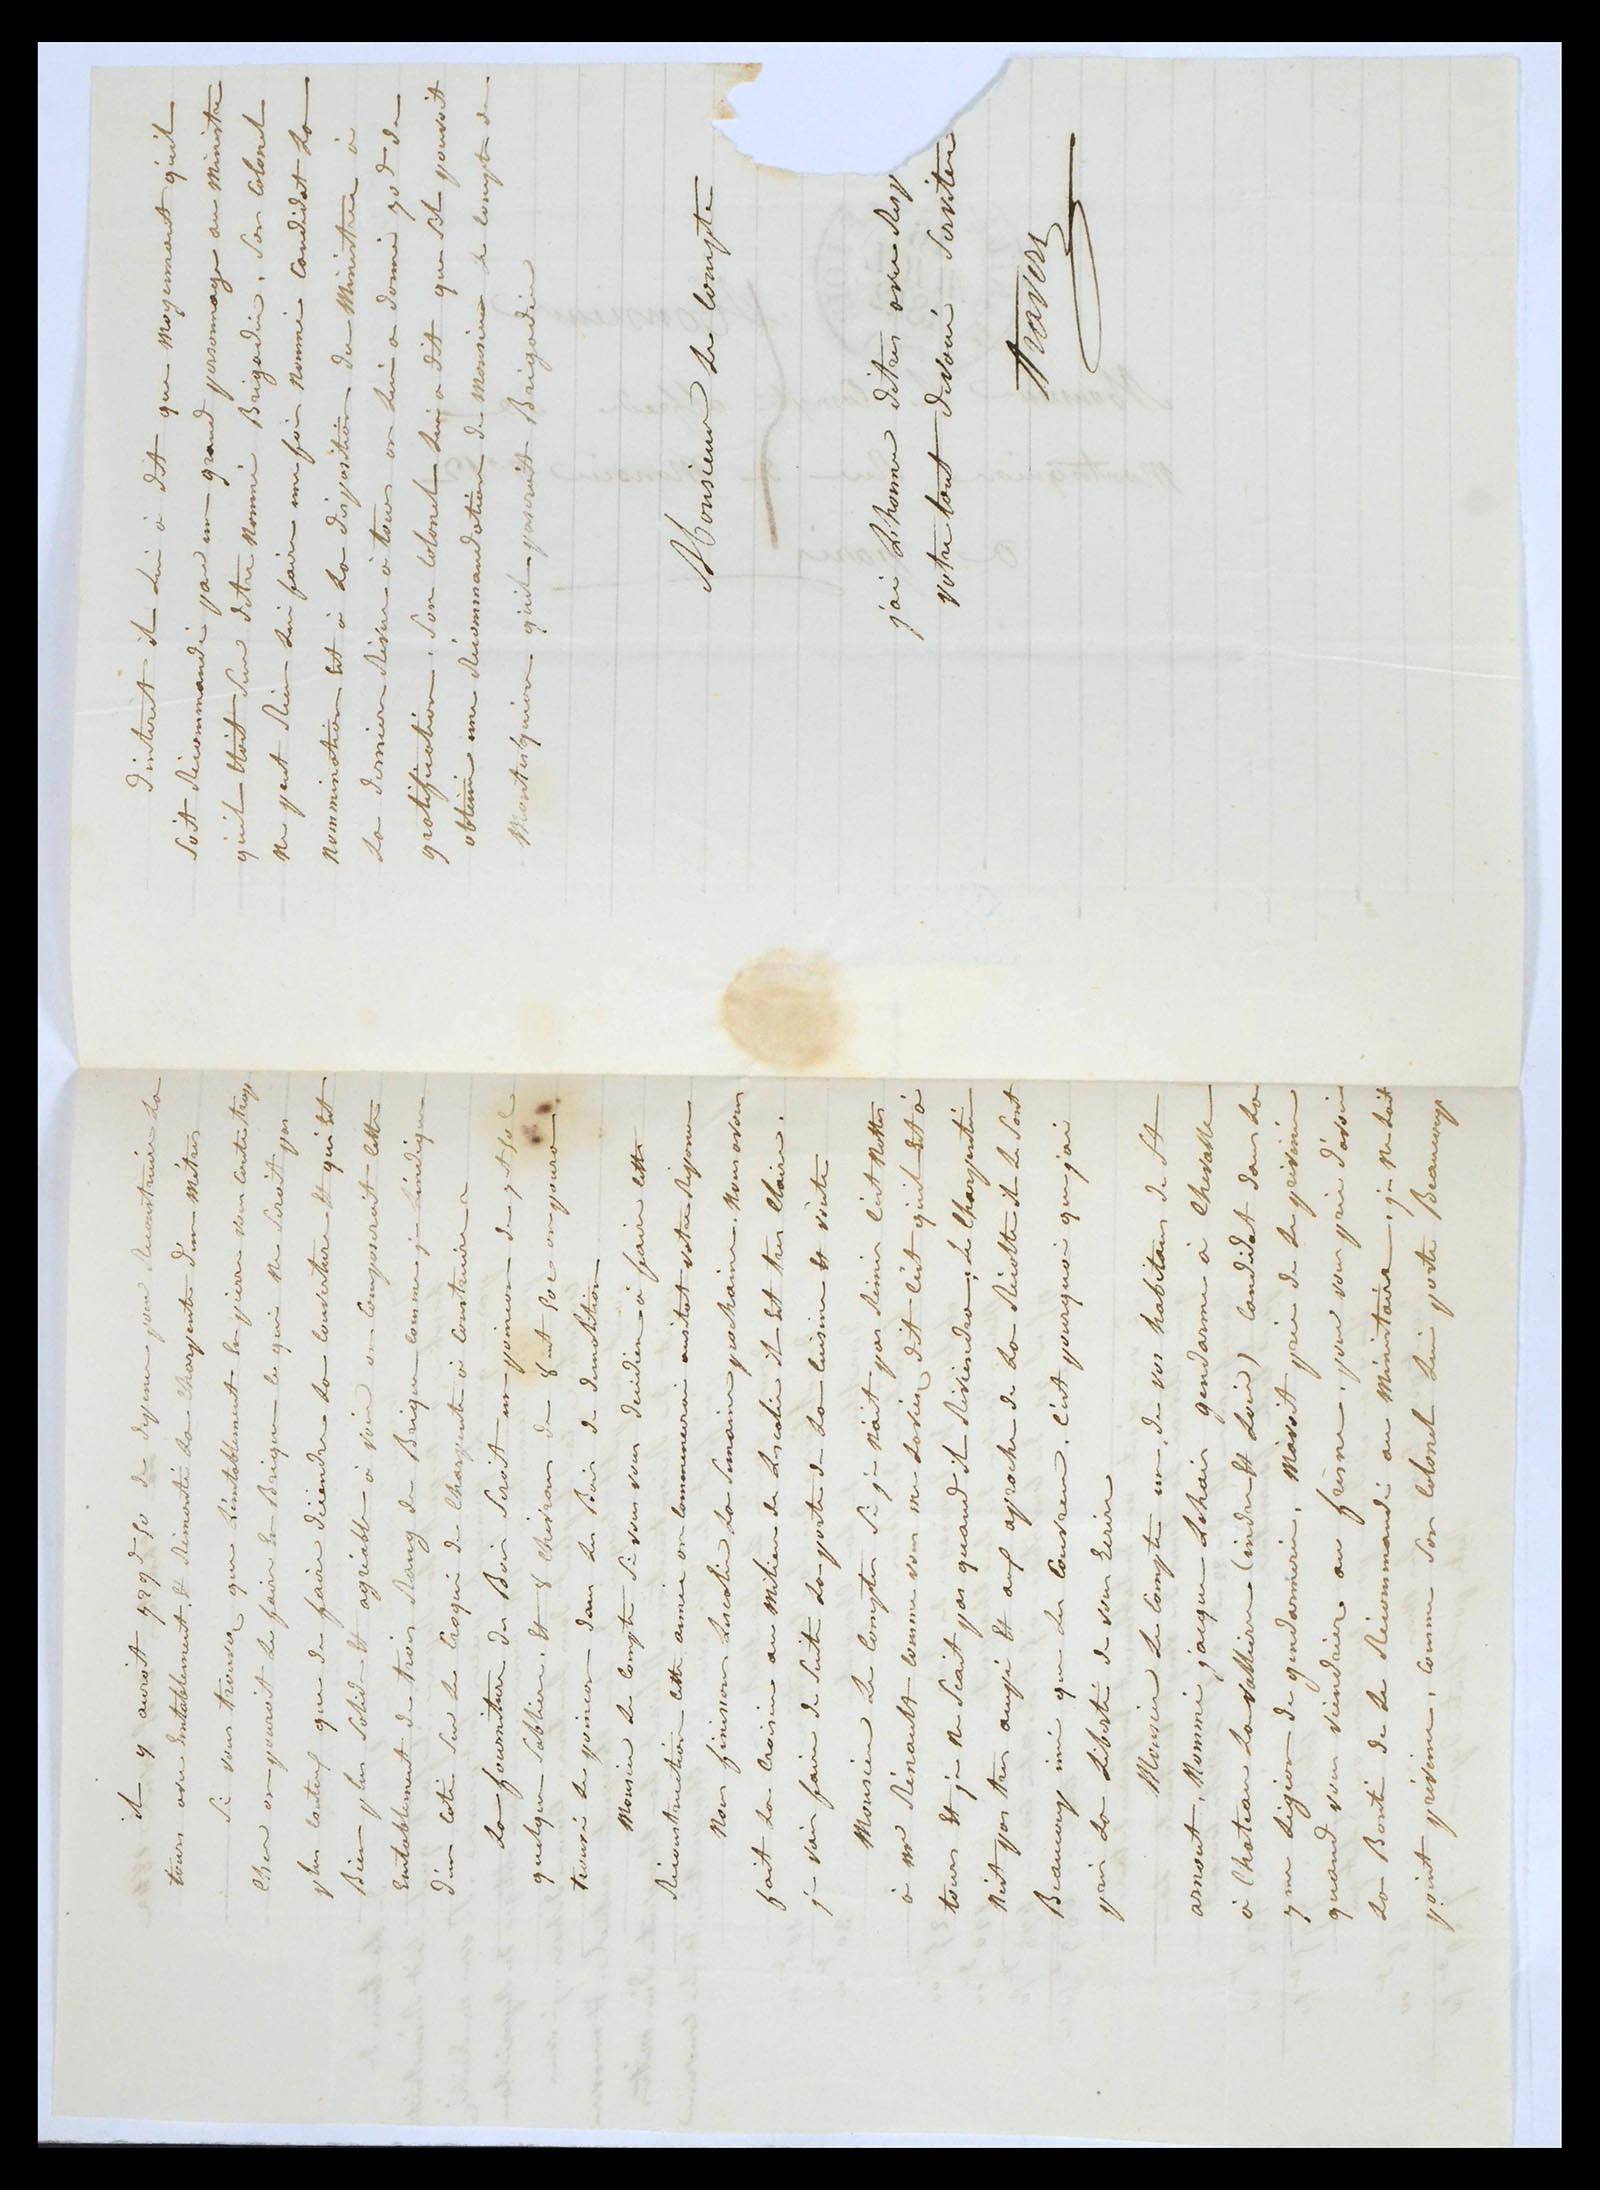 il y auroit 929 d 50 de depense pour Reconstruire la
tour avec Entablement, et Remonté la Charpente d'un Mètre
Si vous trouvez que l'entablement en pierre vous Coute trop
Cher on pouroit le faire En Brique ce qui ne Seroit pas
plus Couteux que de faire déscendre la Couverture Et qui Est
Bien plus Solide Et agréable à voir on Composeroit Cette
Entablement de trois Rang de Brique comme je l'indique
d'un coté Sur le Croqui de Charpente à Construire
la fourniture des Bois Seroit un poincon de
quelques Sablier, Et 8 Chevrons de on poura
trouvé le poincon dans les Bois de demolition
Monsieur le Compte Si vous vous décidiez à faire Cette
Reconstruction Cette année on Commencerai ausitot votre Réponse
Nous finissons l'escalier la Semaine prochaine. Nous avons
fait la Croisée au Milieu de l'escalier il Est tres Claire.
je vais faire de Suite la porte de la Cuisine Et voute
Monsieur le Compte Si je n'ait pas Remis C'est Notes
à mr Renault Comme vous me l'aviez dit C'est qu'il Est à
tours Et je ne Scait pas quand il Reviendra, le Charpentié
N'est pas tres aussi Et aux approche de la Récolte il le Sont
Beaucoup ainsi que les Couvreur, C'est pourquoi que j'ai
pris la liberté de vous Ecrire
Monsieur le Compte un de vos habitans de St
arnoult, Nommé jacque gendarme à Chevalle
à Chateau la Vallière (indre Et Loire) Candidat dans la
7me Légion de gendarmerie, M'avoit prier de le prévenir
quand vous viendriez au fresne, pour vous prier d'avoir
la Bonté de le Recommandé au Ministaire, je ne l'ait
point prévenu, Comme Son Colonel lui porte Beaucoup
d'interet il lui à dit que Moyennant qu'il
Soit Recommandé par un grand personnage au Ministre
qu'il Etoit Sur d'etre Nommé Brigadier, Son Colonel
ne peut Rien lui faire une fois Nommé Candidat la
Nommination Est à la disposition du Ministre à
la dernier Revue à tours on lui a donné 70 d de
gratification. Son Colonel lui a dit que S'il pouvoit
obtenir une Recommandation de Monsieur le Compte de
Montesquiou qu'il passeroit Brigadier
Monsieur le Compte
j'ai L'honneur d'etres avec Resp
votre tout dévoué Serviteu
Travers